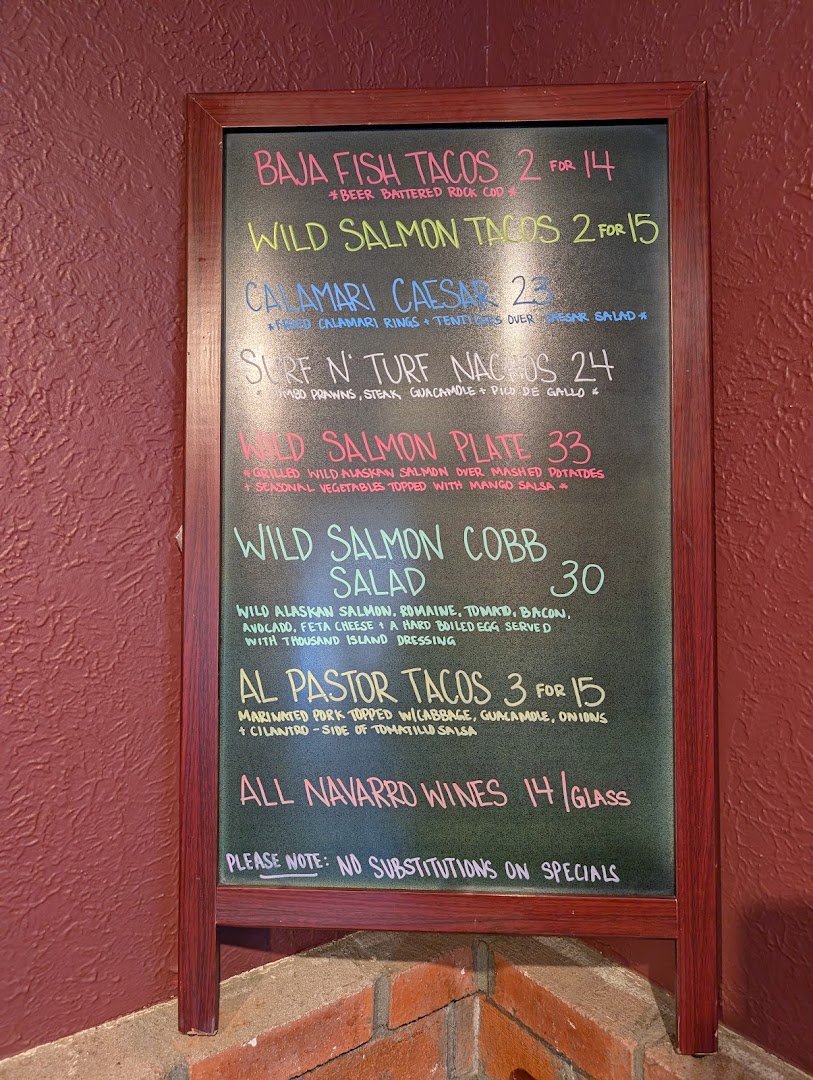 BAJA FISH TACOS 2 FOR 14
*BEER BATTERED ROCK COD*
WILD SALMON TACOS 2 FOR 15
CALAMARI CAESAR 23
*FRIED CALAMARI RINGS + TENTICLES OVER CAESAR SALAD*
SURF N' TURF NACHOS 24
*JUMBO PRAWNS, STEAK, GUACAMOLE + PICO DE GALLO *
WILD SALMON PLATE 33
*GRILLED WILD ALASKAN SALMON OVER MASHED POTATOES
+ SEASONAL VEGETABLES TOPPED WITH MANGO SALSA *
WILD SALMON COBB
SALAD 30
WILD ALASKAN SALMON, ROMAINE, TOMATO, BACON,
AVOCADO, FETA CHEESE + A HARD BOILED EGG SERVED
WITH THOUSAND ISLAND DRESSING
AL PASTOR TACOS 3 FOR 15
MARINATED PORK TOPPED W/CABBAGE, GUACAMOLE, ONIONS
+ CILANTRO - SIDE OF TOMATILLO SALSA
ALL NAVARRO WINES 14/GLASS
PLEASE NOTE: NO SUBSTITUTIONS ON SPECIALS